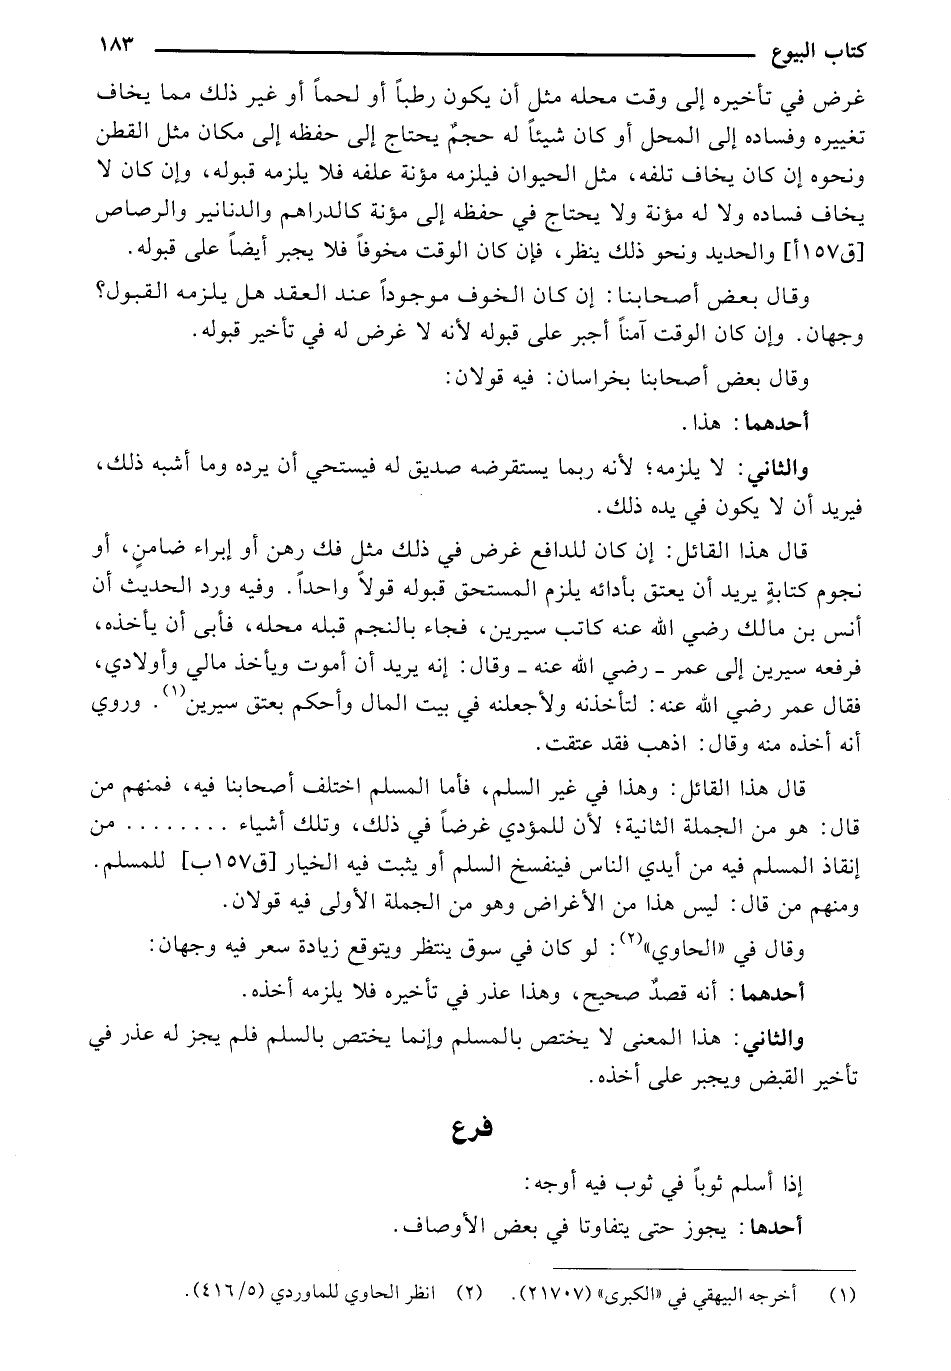 كتاب البيوع ١٨٣
غرض في تأخيره إلى وقت محله مثل أن يكون رطباً أو لحماً أو غير ذلك مما يخاف
تغييره وفساده إلى المحل أو كان شيئاً له حجمٌ يحتاج إلى حفظه إلى مكان مثل القطن
ونحوه إن كان يخاف تلفه، مثل الحيوان فيلزمه مؤنة علفه فلا يلزمه قبوله، وإن كان لا
يخاف فساده ولا له مؤنة ولا يحتاج في حفظه إلى مؤنة كالدراهم والدنانير والرصاص
[ق١٥٧أ] والحديد ونحو ذلك ينظر، فإن كان الوقت مخوفاً فلا يجبر أيضاً على قبوله.
وقال بعض أصحابنا: إن كان الخوف موجوداً عند العقد هل يلزمه القبول؟
وجهان. وإن كان الوقت آمناً أجبر على قبوله لأنه لا غرض له في تأخير قبوله.
وقال بعض أصحابنا بخراسان: فيه قولان:
أحدهما: هذا.
والثاني: لا يلزمه؛ لأنه ربما يستقرضه صديق له فيستحي أن يرده وما أشبه ذلك،
فيريد أن لا يكون في يده ذلك.
قال هذا القائل: إن كان للدافع غرض في ذلك مثل فك رهن أو إبراء ضامنٍ، أو
نجوم كتابةٍ يريد أن يعتق بأدائه يلزم المستحق قبوله قولاً واحداً. وفيه ورد الحديث أن
أنس بن مالك رضي الله عنه كاتب سيرين، فجاء بالنجم قبله محله، فأبى أن يأخذه،
فرفعه سيرين إلى عمر ـ رضي الله عنه ـ وقال: إنه يريد أن أموت ويأخذ مالي وأولادي،
فقال عمر رضي الله عنه: لتأخذنه ولأجعلنه في بيت المال وأحكم بعتق سيرين(١). وروي
أنه أخذه منه وقال: اذهب فقد عتقت.
قال هذا القائل: وهذا في غير السلم، فأما المسلم اختلف أصحابنا فيه، فمنهم من
قال: هو من الجملة الثانية؛ لأن للمؤدي غرضاً في ذلك، وتلك أشياء ........ من
إنقاذ المسلم فيه من أيدي الناس فينفسخ السلم أو يثبت فيه الخيار [ق١٥٧ب] للمسلم.
ومنهم من قال: ليس هذا من الأغراض وهو من الجملة الأولى فيه قولان.
وقال في «الحاوي»(٢): لو كان في سوق ينتظر ويتوقع زيادة سعر فيه وجهان:
أحدهما: أنه قصدٌ صحيح، وهذا عذر في تأخيره فلا يلزمه أخذه.
والثاني: هذا المعنى لا يختص بالمسلم وإنما يختص بالسلم فلم يجز له عذر في
تأخير القبض ويجبر على أخذه.
فرع
إذا أسلم ثوباً في ثوب فيه أوجه:
أحدها: يجوز حتى يتفاوتا في بعض الأوصاف.
(١) أخرجه البيهقي في «الكبرى» (٢١٧٠٧). (٢) انظر الحاوي للماوردي (٥/ ٤١٦).